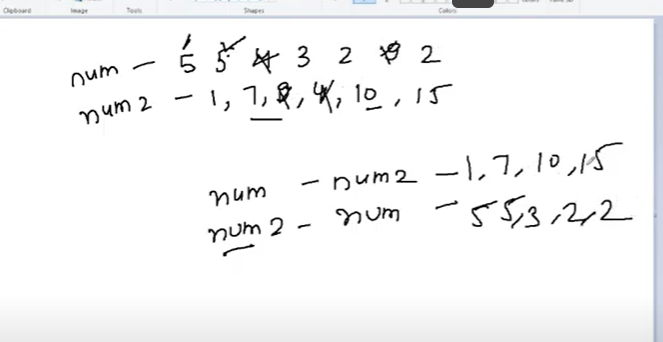 Clipboard Image Tools Shapes Colors
num - 5 5 4 3 2 9 2
num2 - 1, 7, 9, 4, 10, 15
num - num2 - 1, 7, 10, 15
num2 - num - 5 5, 3, 2, 2